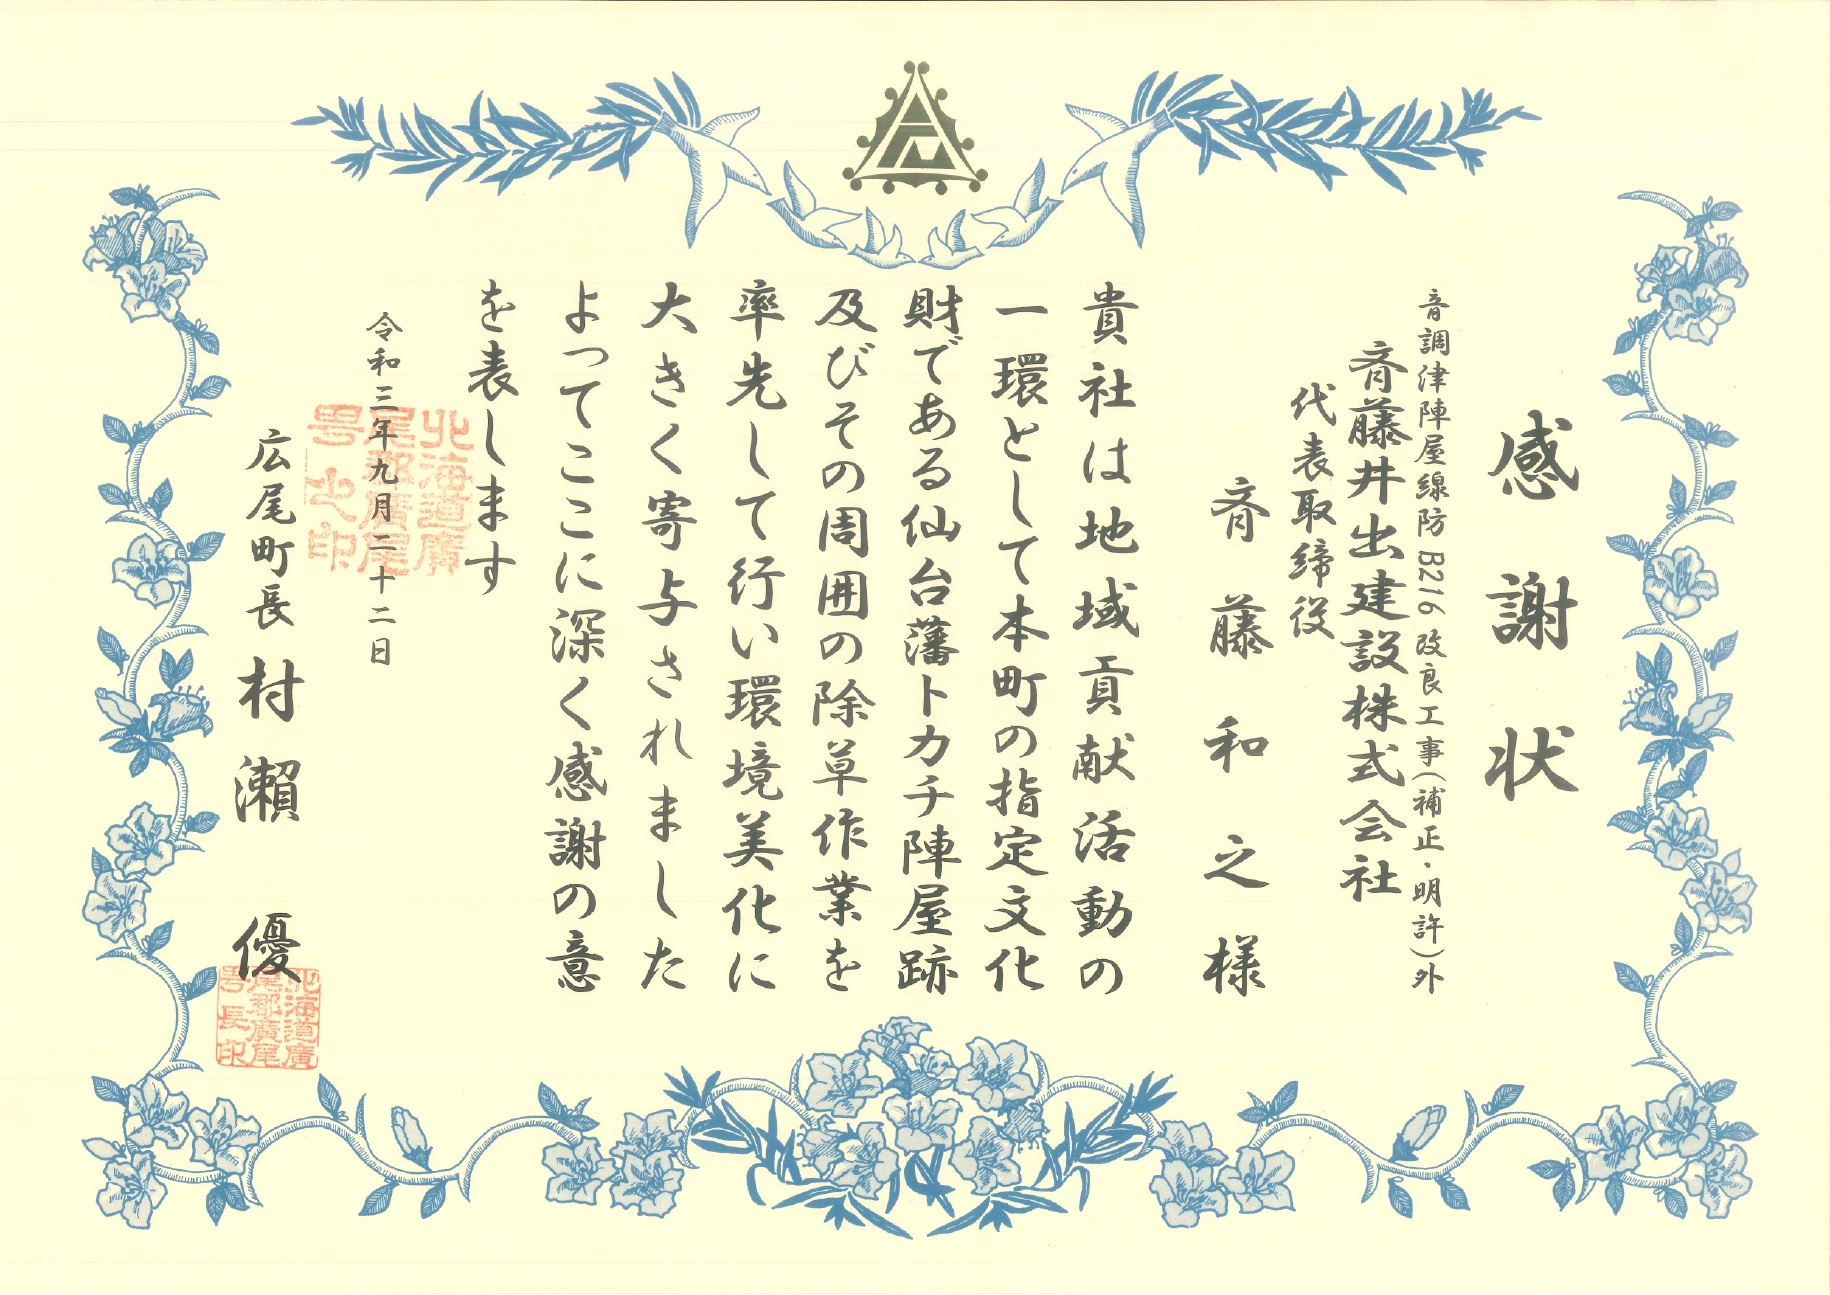 感謝状
音調津陣屋線防B216改良工事(補正・明許)外
斉藤井出建設株式会社
代表取締役
斉藤和之様
貴社は地域貢献活動の
一環として本町の指定文化
財である仙台藩トカチ陣屋跡
及びその周囲の除草作業を
率先して行い環境美化に
大きく寄与されました
よってここに深く感謝の意
を表します
令和三年九月二十二日
北海道廣
尾郡廣尾
町之印
広尾町長 村瀨 優
北海道廣
尾郡廣尾
町長印